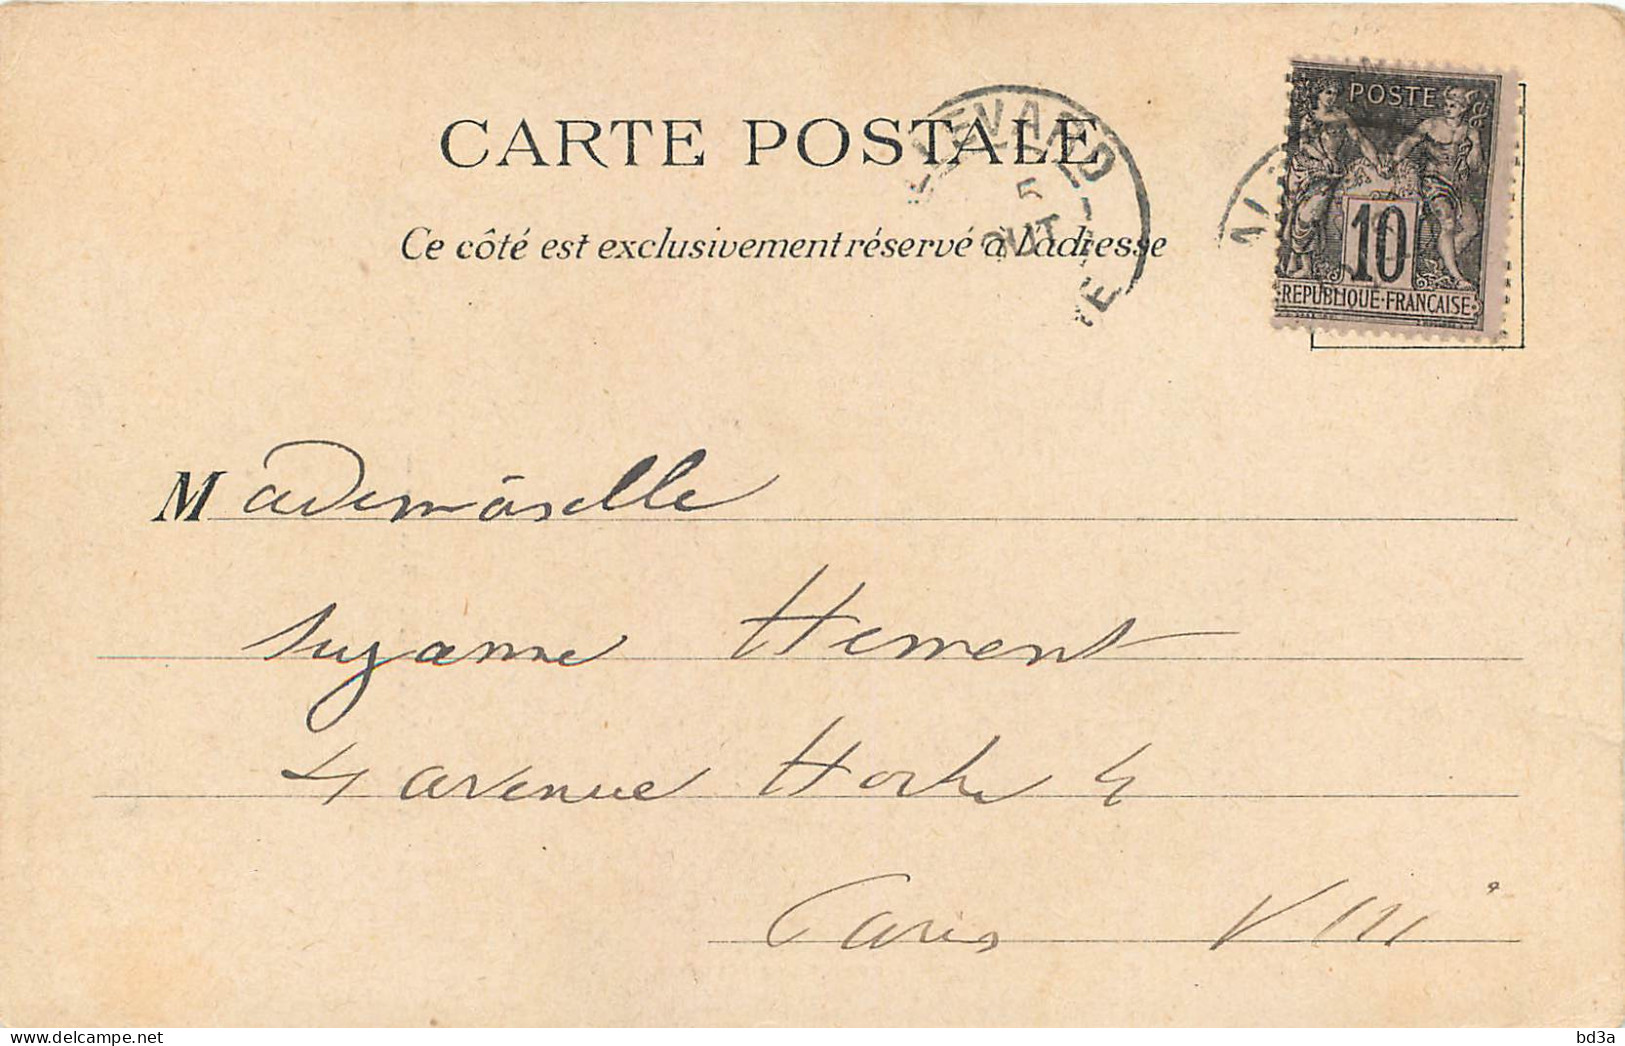 CARTE POSTALE
Ce côté est exclusivement réservé à l'adresse
LLEVARD
5
OUT
POSTE
10
REPUBLIQUE·FRANÇAISE
Mademoiselle
Suzanne Hement
4 avenue Hoche 4
Paris VIII
delcampe.net
bd3a